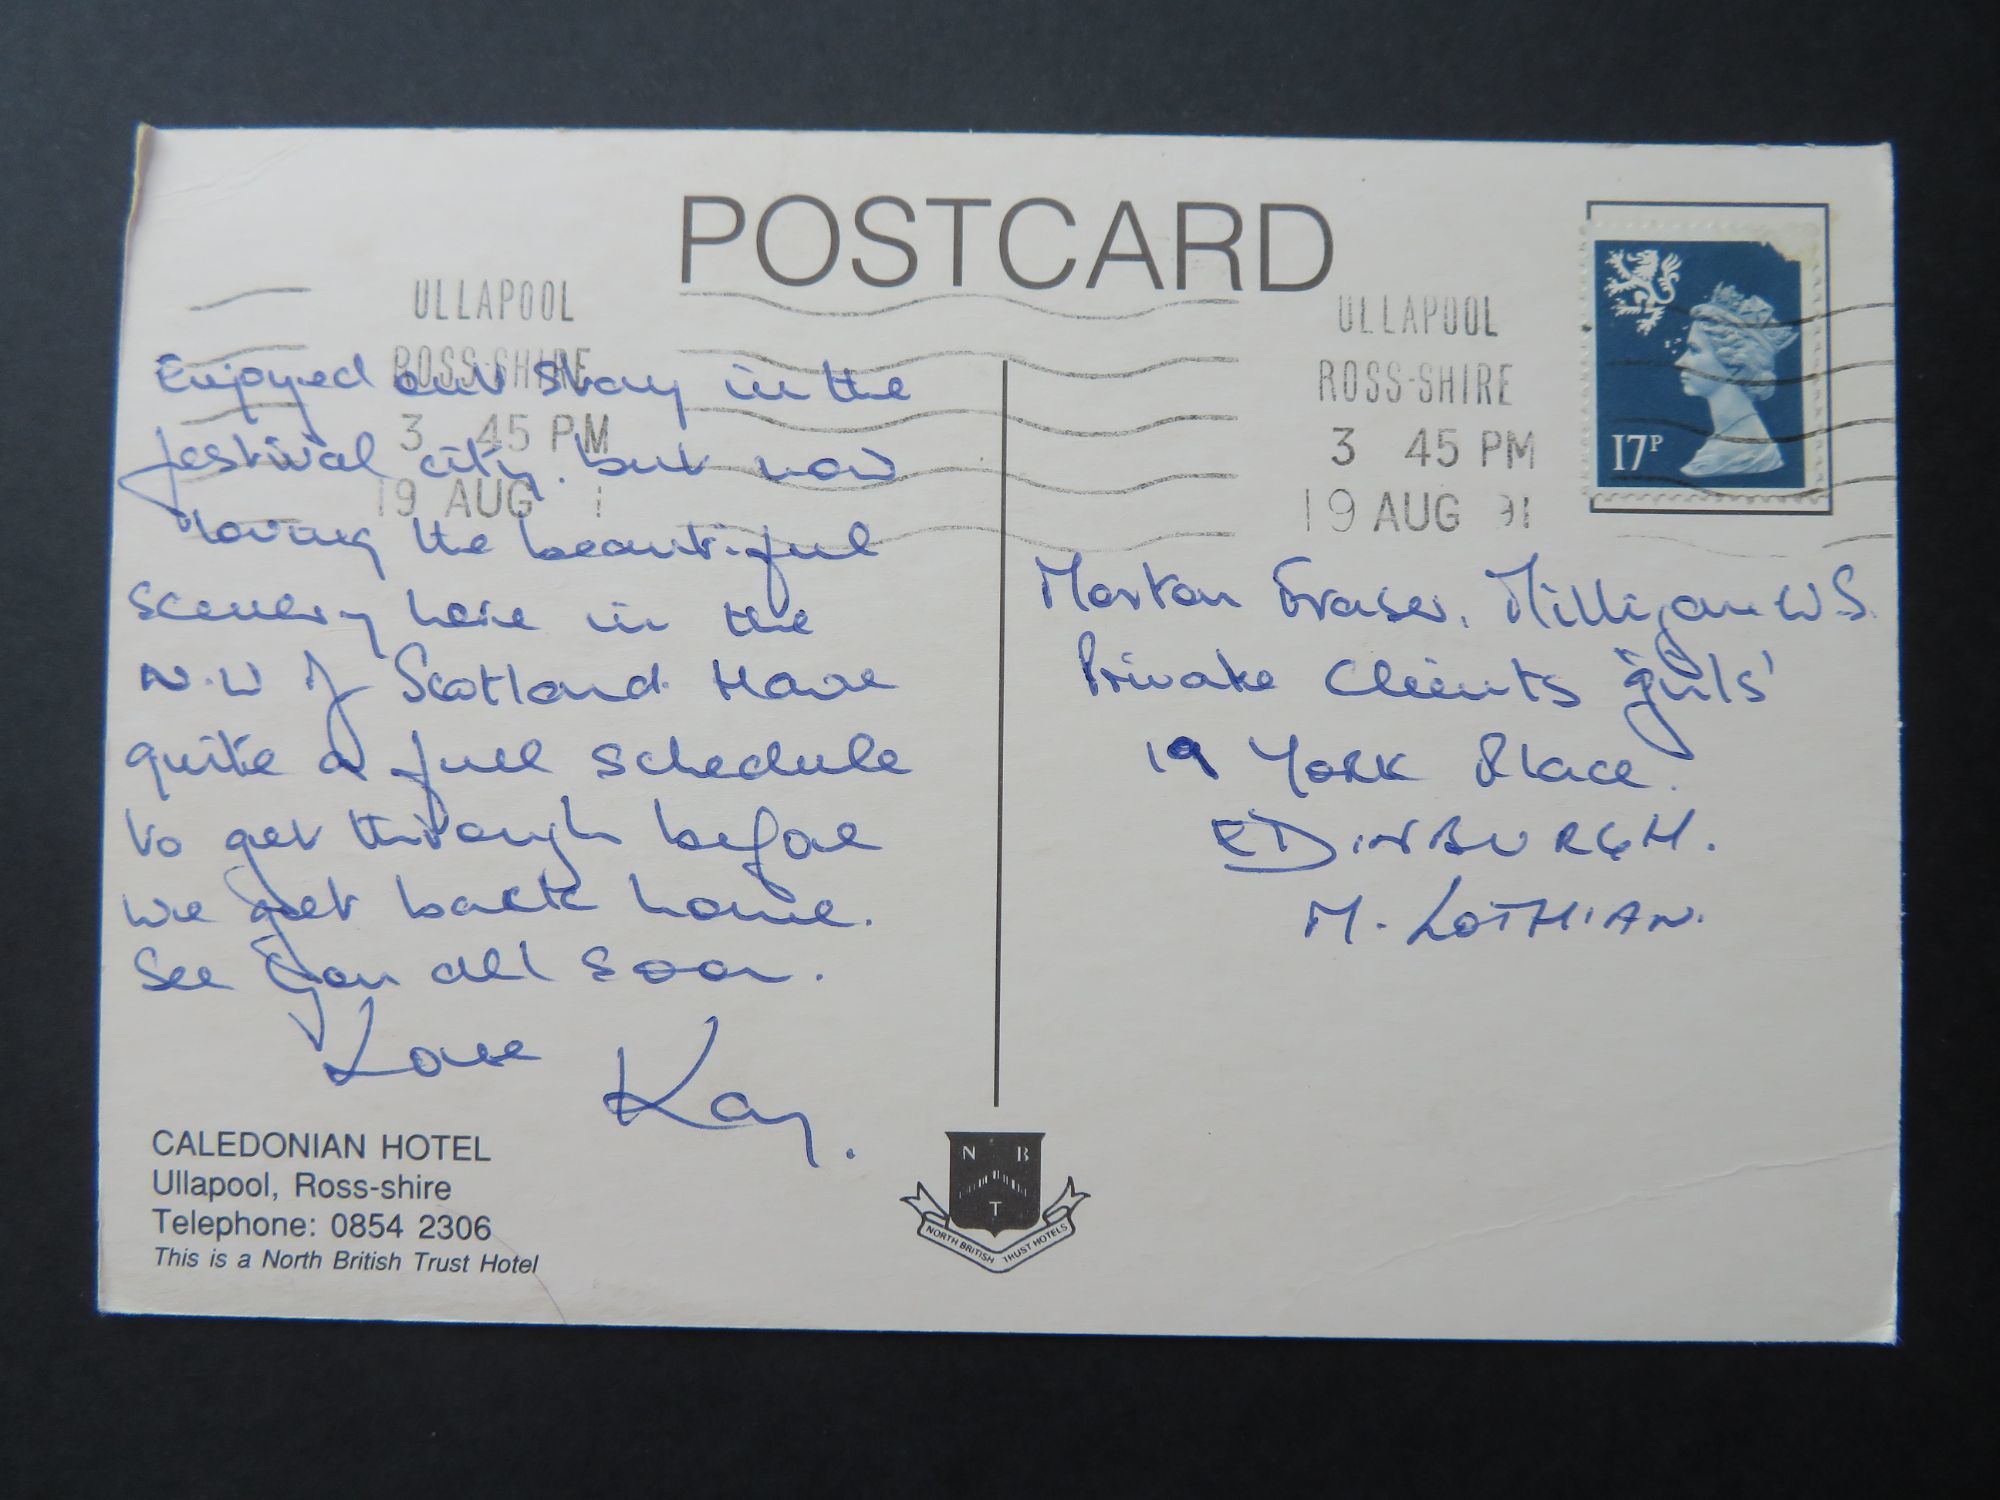 POSTCARD
ULLAPOOL
ROSS-SHIRE
3 45 PM
19 AUG 1
ULLAPOOL
ROSS-SHIRE
3 45 PM
19 AUG 91
17P
Enjoyed our stay in the
festival city. but now
loving the beautiful
scenery here in the
N.W of Scotland. Have
quite a full schedule
to get through before
we get back home.
See you all soon.
Love Kay.
Morton Fraser, Milligan W.S.
Private Clients 'girls'
19 York Place.
EDINBURGH.
M. LOTHIAN.
CALEDONIAN HOTEL
Ullapool, Ross-shire
Telephone: 0854 2306
This is a North British Trust Hotel
N B
T
NORTH BRITISH TRUST HOTELS